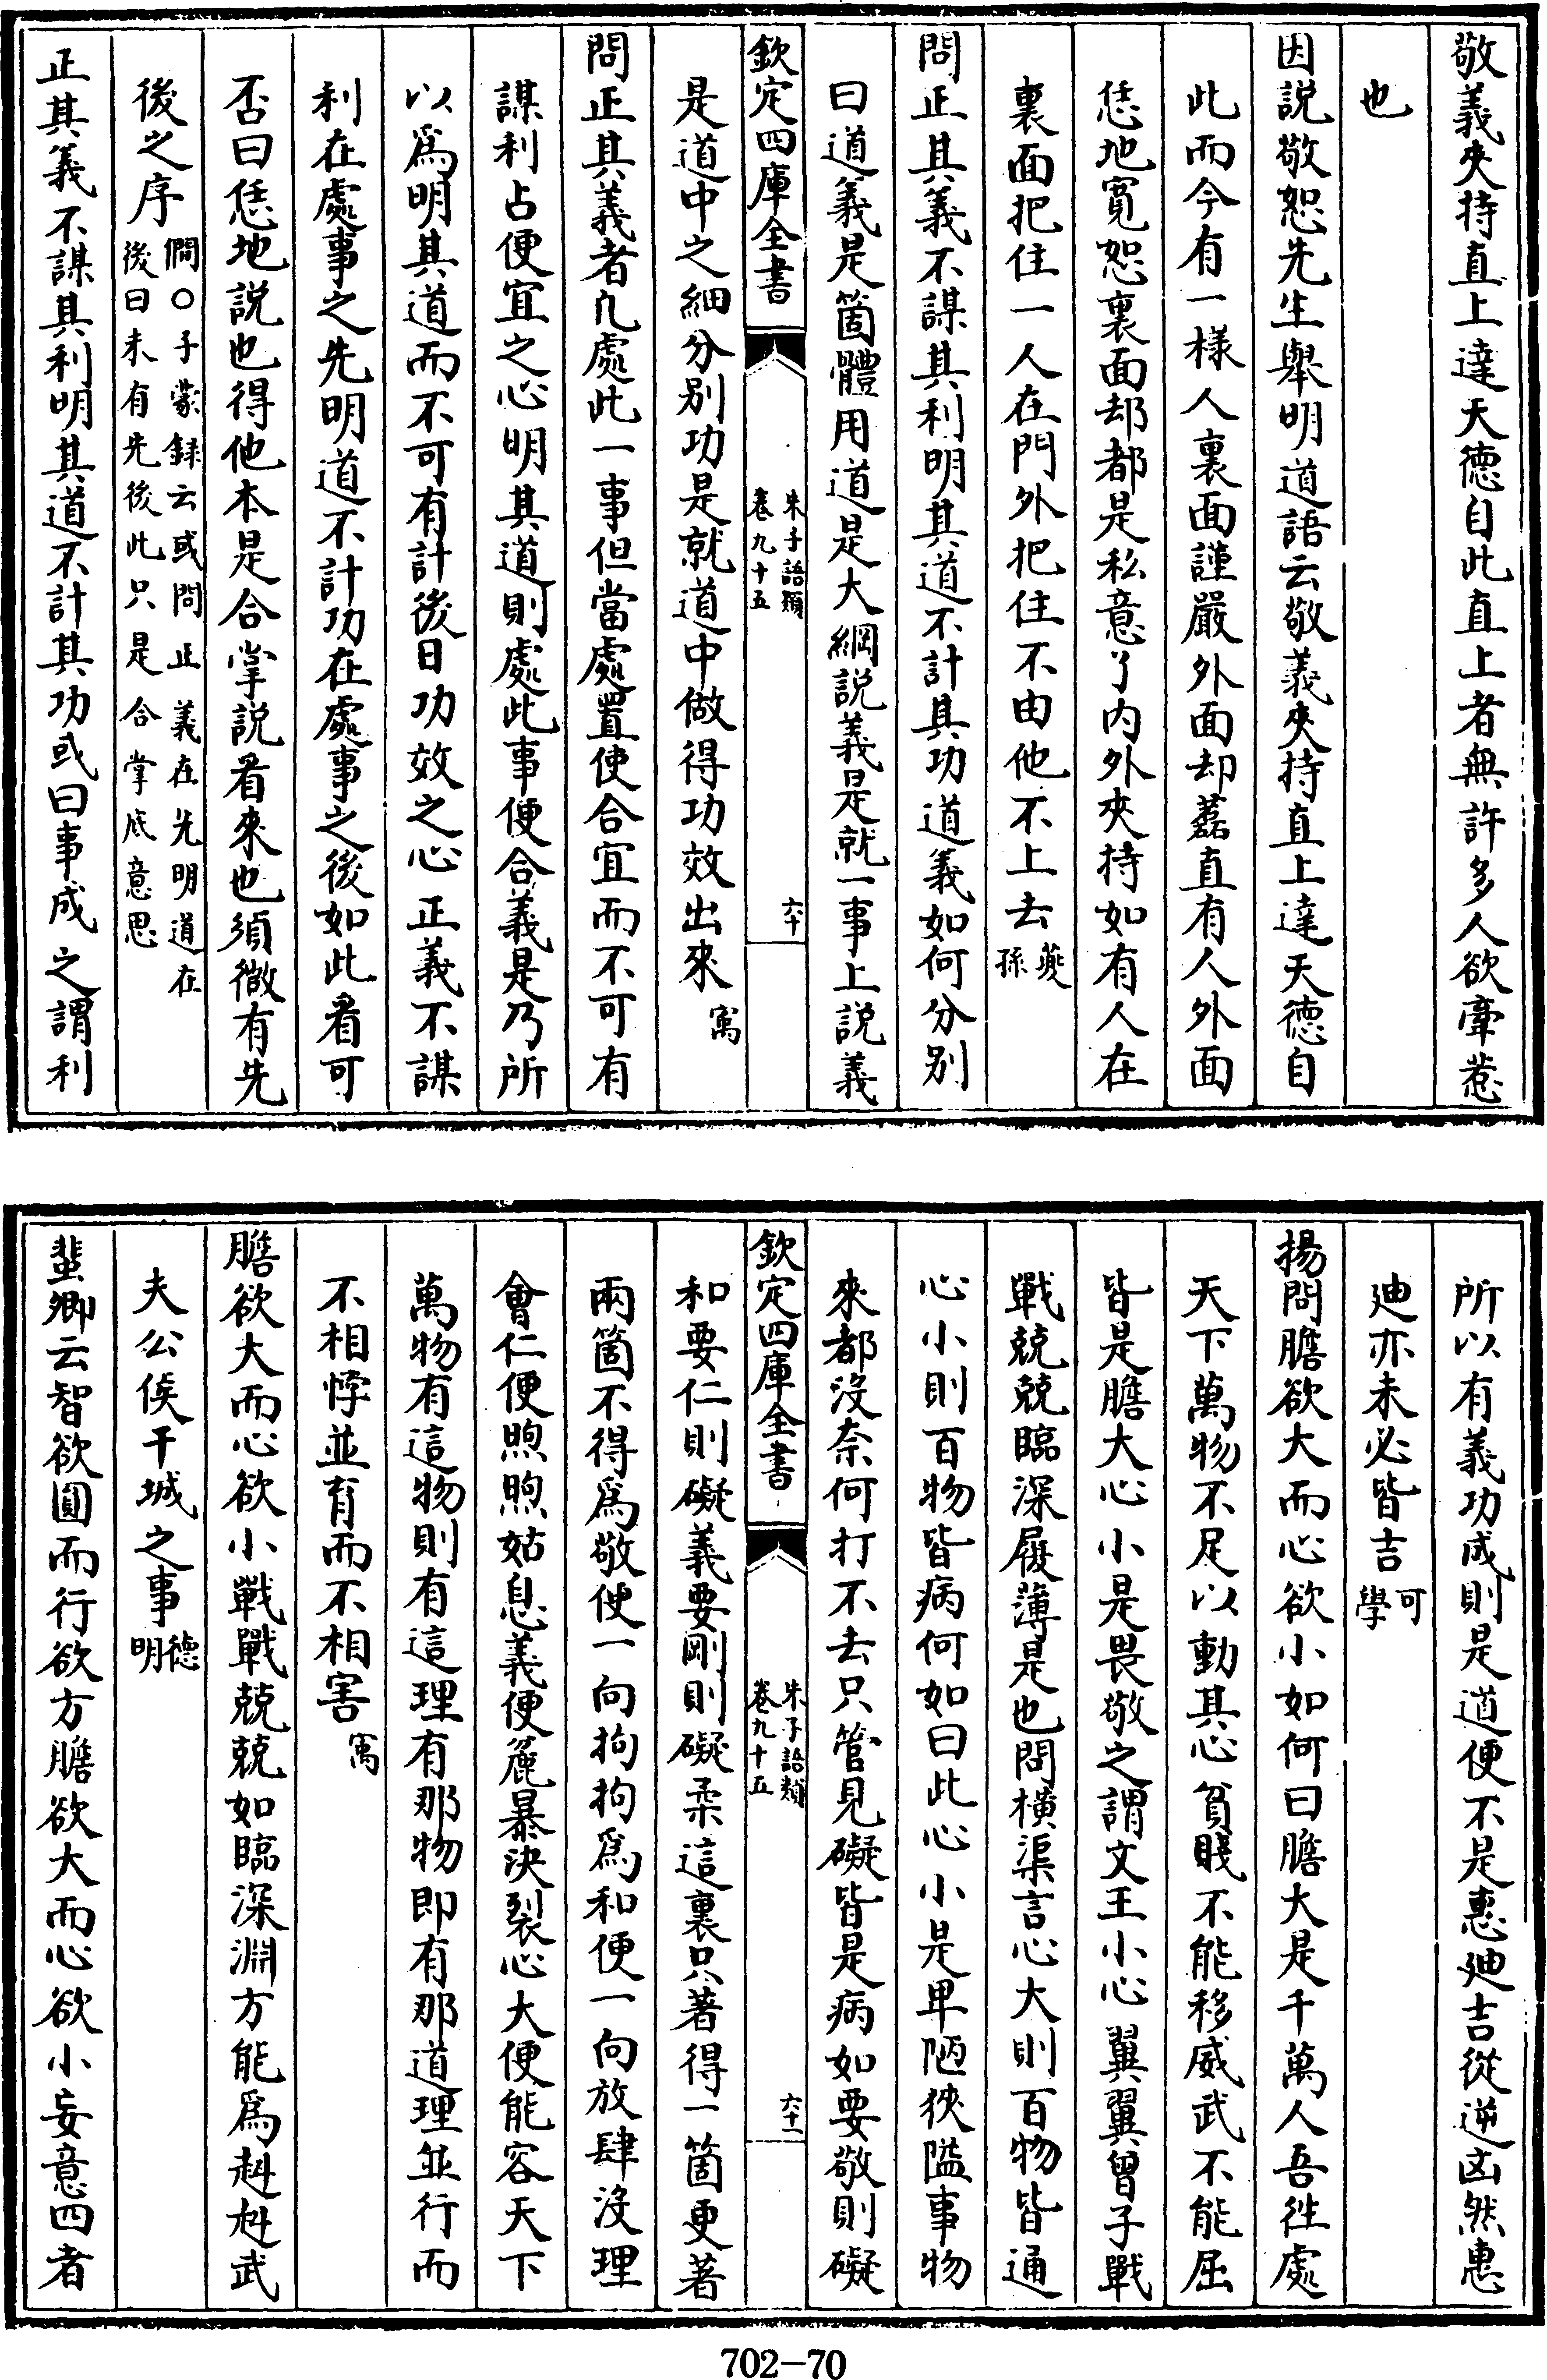 敬義夾持直上達天德自此直上者無許多人欲牽惹
也
因説敬恕先生舉明道語云敬義夾持直上達天德自
此而今有一樣人裏面謹嚴外面却蘦直有人外面
恁地寛恕裏面却都是私意了内外夾持如有人在
裏面把住一人在門外把住不由他不上去夔孫
問正其義不謀其利明其道不計其功道義如何分别
曰道義是箇體用道是大綱説義是就一事上説義
欽定四庫全書
朱子語類
卷九十五
六十
是道中之細分别功是就道中做得功效出來㝢
問正其義者凢處此一事但當處置使合宜而不可有
謀利占便宜之心明其道則處此事便合義是乃所
以爲明其道而不可有計後日功效之心正義不謀
利在處事之先明道不計功在處事之後如此看可
否曰恁地説也得他本是合掌説看來也須微有先
後之序僩〇子蒙録云或問正義在先明道在後曰未有先後此只是合掌底意思
正其義不謀其利明其道不計其功或曰事成之謂利
所以有義功成則是道便不是惠廸吉從逆凶然惠
廸亦未必皆吉可學
揚問膽欲大而心欲小如何曰膽大是千萬人吾徃處
天下萬物不足以動其心貧賤不能移威武不能屈
皆是膽大心小是畏敬之謂文王小心翼翼曾子戰
戰兢兢臨深履薄是也問橫渠言心大則百物皆通
心小則百物皆病何如曰此心小是卑陋狹隘事物
來都沒奈何打不去只管見礙皆是病如要敬則礙
欽定四庫全書
朱子語類
卷九十五
六十一
和要仁則礙義要剛則礙柔這裏只著得一箇更著
兩箇不得爲敬便一向拘拘爲和便一向放肆沒理
會仁便煦煦姑息義便麄暴決裂心大便能容天下
萬物有這物則有這理有那物即有那道理並行而
不相悖並育而不相害㝢
膽欲大而心欲小戰戰兢兢如臨深淵方能爲赳赳武
夫公侯干城之事德明
蜚卿云智欲圓而行欲方膽欲大而心欲小妄意四者
702-70